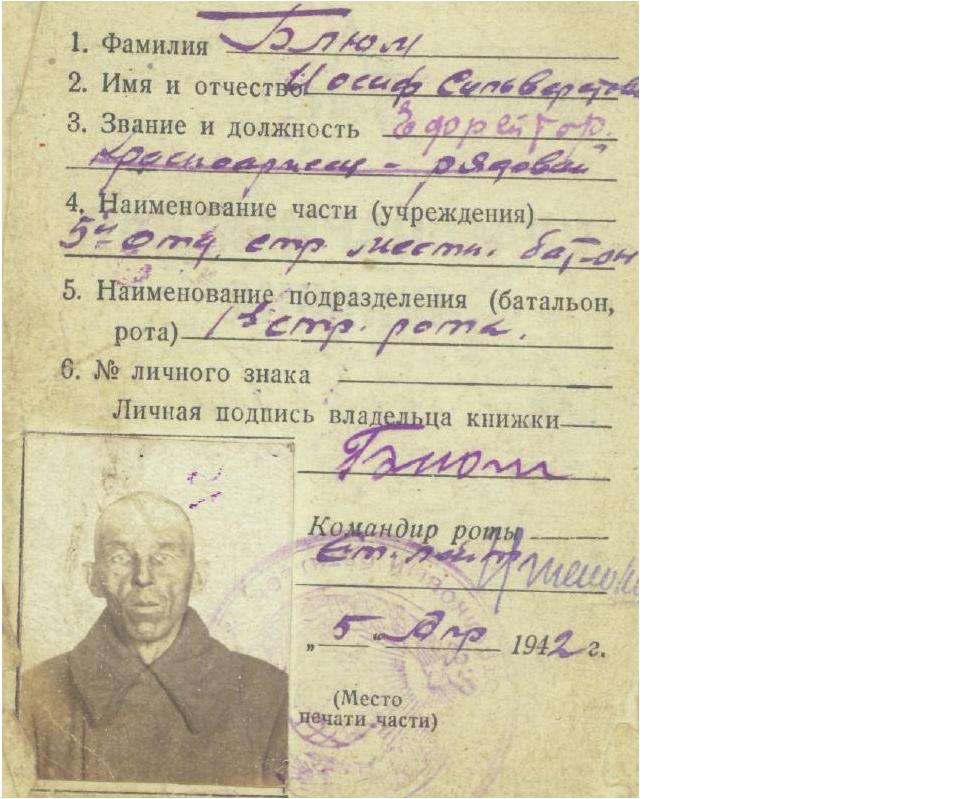 1. Фамилия Блюм
2. Имя и отчество Иосиф Сильверстов
3. Звание и должность Ефрейтор.
Красноармеец - рядовой
4. Наименование части (учреждения)
5й отд. стр. местн. бат-он
5. Наименование подразделения (батальон,
рота) 1я стр. рота.
6. № личного знака
Личная подпись владельца книжки
Блюм
Командир роты
Ст. лейт
„5“ Апр 1942 г.
(Место
печати части)